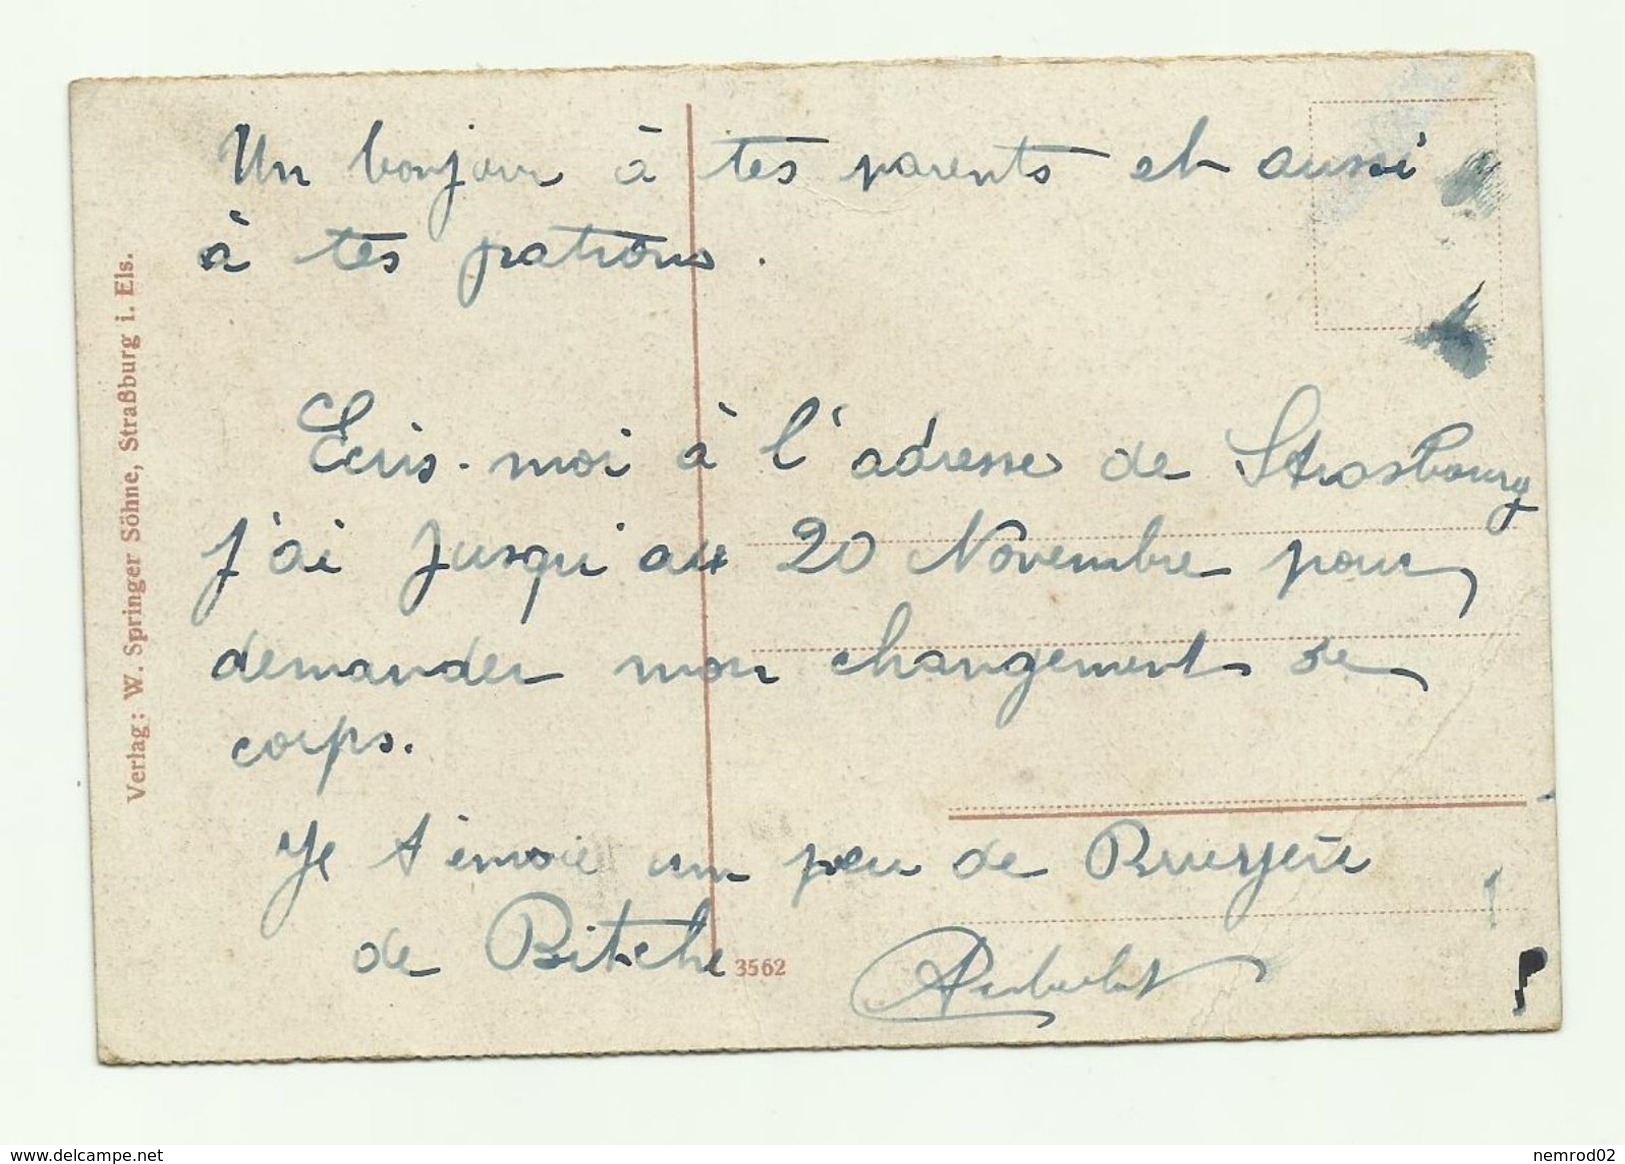 Un bonjour à tes parents et aussi
à tes patrons.
Ecris-moi à l'adresse de Strasbourg
J'ai jusqu'au 20 Novembre pour
demander mon changement de
corps.
Je t'envoie un peu de Bruyère
de Bitche
3562
Verlag: W. Springer Söhne, Straßburg i. Els.
www.delcampe.net
nemrod02